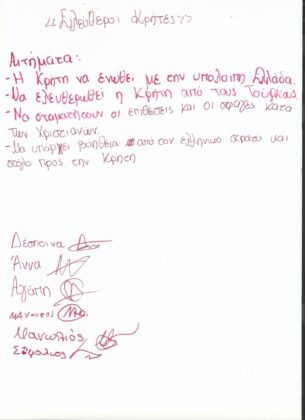 <<Ελεύθεροι Κρήτες>>
Αιτήματα:
- Η Κρήτη να ενωθεί με την υπόλοιπη Ελλάδα.
- Να ελευθερωθεί η Κρήτη από τους Τούρκους
- Να σταματήσουν οι επιθέσεις και οι σφαγές κατά
των Χριστιανών.
- Να υπάρξει βοήθεια από τον ελληνικό στρατό και
στόλο προς την Κρήτη
Δέσποινα
Άννα
Αγάπη
Μανούσος
Μανωλιός